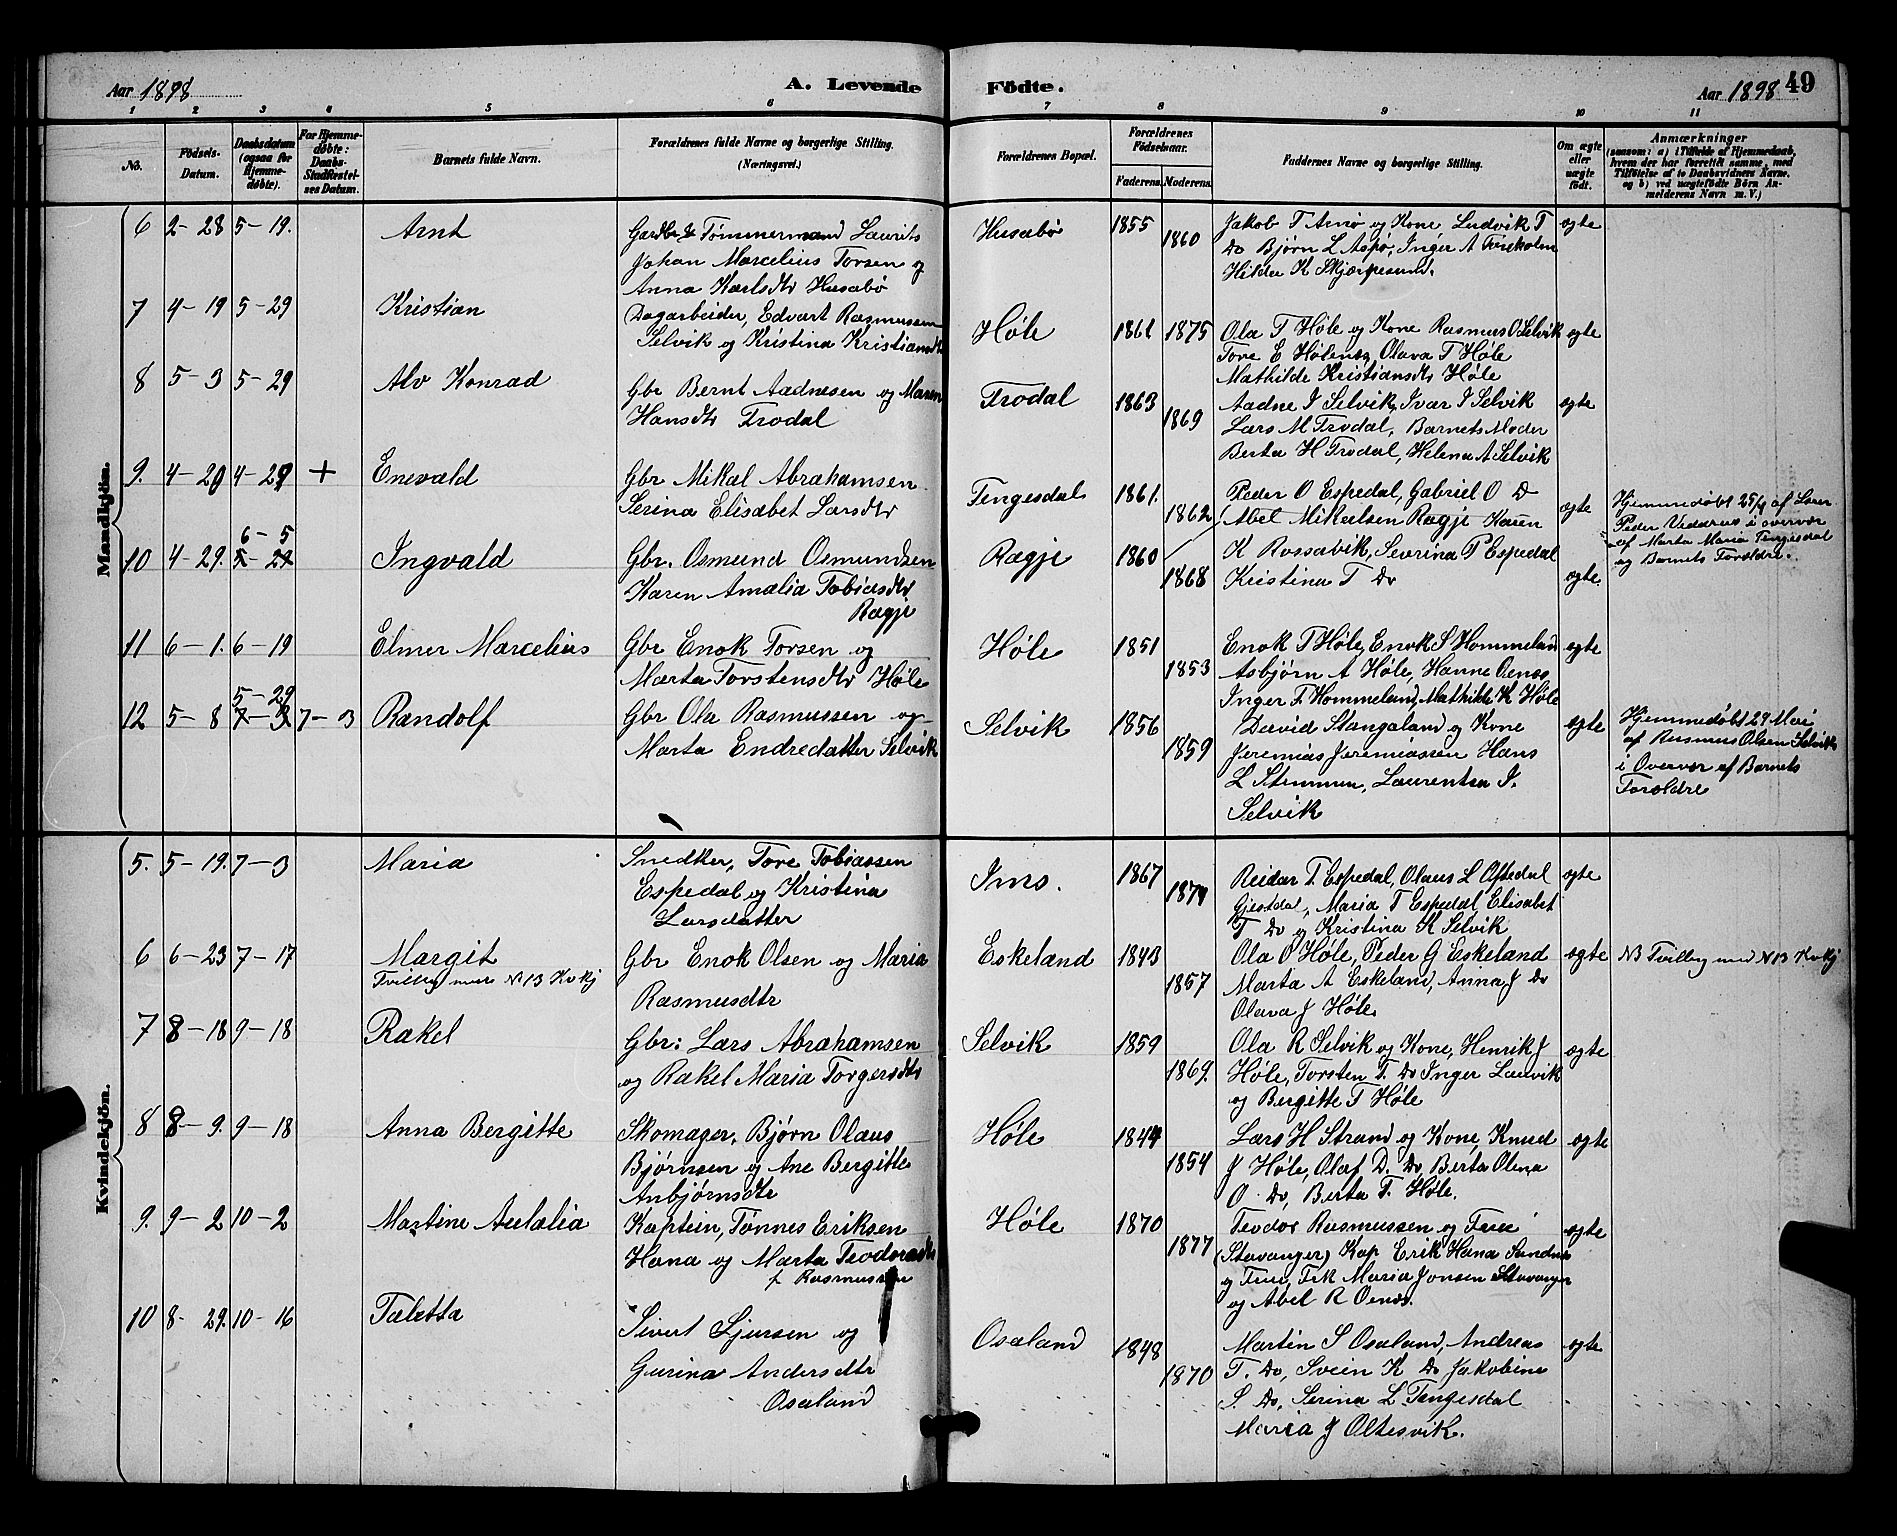 Aar 1898
A. Levende Födte.
Aar 1898 49
1 2 3 4 5 6 7 8 9 10 11
No.
Födsels-Datum.
Daabsdatum (ogsaa for Hjemmedöbte).
For Hjemmedöbte: Daabs-Stadfæstelses Datum.
Barnets fulde Navn.
Forældrenes fulde Navne og borgerlige Stilling. (Næringsvei.)
Forældrenes Bopæl.
Forældrenes Födselsaar.
Faderens. Moderens.
Faddernes Navne og borgerlige Stilling.
Om ægte eller uægte födt.
Anmærkninger
(saasom: a) i Tilfælde af Hjemmedaab, hvem der har forrettet samme, med Tilföielse af to Daabsvidners Navne, og b) ved uægtefödte Börn Anmelderens Navn m. V.)
Mandkjön.
6 2-28 5-19. Arnt
Gardbr & Tømmermand Laurits
Johan Marcelius Torsen og
Anna Karlsdtr Husebø
Husebø 1855 1860
Jakob T Amø og Kone, Ludvik T
Do Bjørn L Aspø, Inger A
Hilda K Skjørpesund.
ægte
7 4-19 5-29 Kristian
Dagarbeider, Edvart Rasmussen
Selvik og Kristina Kristiansdtr
Høle 1861 1875
Ola T Høle og Kone Rasmus O Selvik
Tore E Hølenes, Olava T Høle
Mathilde Kristiansdtr Høle
ægte
8 5-3 5-29 Alv Konrad
Gbr Bernt Aadnesen og Maren
Hansdtr Frodal
Frodal 1863 1869
Aadne I Selvik, Ivar I Selvik
Lars M Frodal, Barnets Moder
Berta H Frodal, Helena A Selvik
ægte
9. 4-20 4-29 + Enevald
Gbr Mikal Abrahamsen
Serina Elisabet Larsdtr
Tengesdal 1861. 1862
Peder O Espedal, Gabriel O Do
Abel Mikalsen Rægje Karen
K Rossavik, Sevrina P Espedal
ægte
Hjemmedøbt 25/4 af Lærer
Peder i overvær
af Marta Maria Tengesdal
og Barnets Foræld re.
10 4-29. 6-5 5-29 Ingvald
Gbr. Osmund Osmundsen
Karen Amalia Tobiasdtr
Rægje
Rægje 1860 1868
Kristina T Do
ægte
11 6-1. 6-19 Elmer Marcelius
Gbr Enok Torsen og
Marta Torstensdtr Høle
Høle 1851 1853
Enok T Høle, Enok S Hommeland
Asbjørn A Høle, Hanne Oenes,
Inger T. Hommeland, Mathilde K Høle
ægte
12 5-8 5-29 7-3 7-3 Randolf
Gbr Ola Rasmussen og
Marta Endredatter Selvik
Selvik 1856 1859
David Stangaland og Kone
Jeremias Jeremiassen Hans
L Stemmen, Laurentsa I.
Selvik
ægte
Hjemmedøbt 29 Mai
af Rasmus Olsen Selvik
i Overvær af Barnets
Forældre
Kvindekjön.
5. 5-19. 7-3 Maria
Snedker, Tore Tobiassen
Espedal og Kristina
Larsdatter
Ims. 1867 1874
Reidar T. Espedal, Olaus L Oftedal
Gjestdal, Maria T Espedal Elisabet
T Do og Kristina K Selvik
ægte
6 6-23 7-17 Margit
Tvilling med N 13 Kvkj
Gbr Enok Olsen og Maria
Rasmusdtr
Eskeland 1843 1857
Ola O Høle, Peder G Eskeland
Marta A Eskeland, Anna J Do
Olava J Høle.
ægte
NB Tvilling med N 13 Kvkj
7 8-18 9-18 Rakel
Gbr: Lars Abrahamsen
og Rakel Maria Torgersdtr
Selvik 1859 1869.
Ola R Selvik og Kone, Henrik J
Høle, Torsten T. Do Inger Lauvik
og Bergitte T Høle
ægte
8 8-9. 9-18 Anna Bergitte
Skomager, Bjørn Olaus
Bjørnsen og Ane Bergitte
Anbjørnsdtr
Høle 1844 1854
Lars H Strand og Kone, Knud
J Høle, Olaf D. Do, Berta Olena
O Do, Berta T. Høle.
ægte
9. 9-2 10-2 Martine Aulalia
Kaptein, Tønnes Eriksen
Hana og Marta Teodorasdtr
f Rasmussen
Høle 1870 1877
Teodor Rasmussen og Frue
(Stavanger) Kap Erik Hana Sandnes
og Frue, Frk Maria Jonsen Stavanger
og Abel R Oenes.
ægte
10 8-29. 10-16 Taletta
Sivert Sjursen og
Gurina Andersdtr
Osaland
Osaland 1848 1870
Martin S Osaland, Andreas
T. Do, Svein K Do Jakobine
S Do, Serina L Tengesdal
Maria J Oltesvik.
ægte